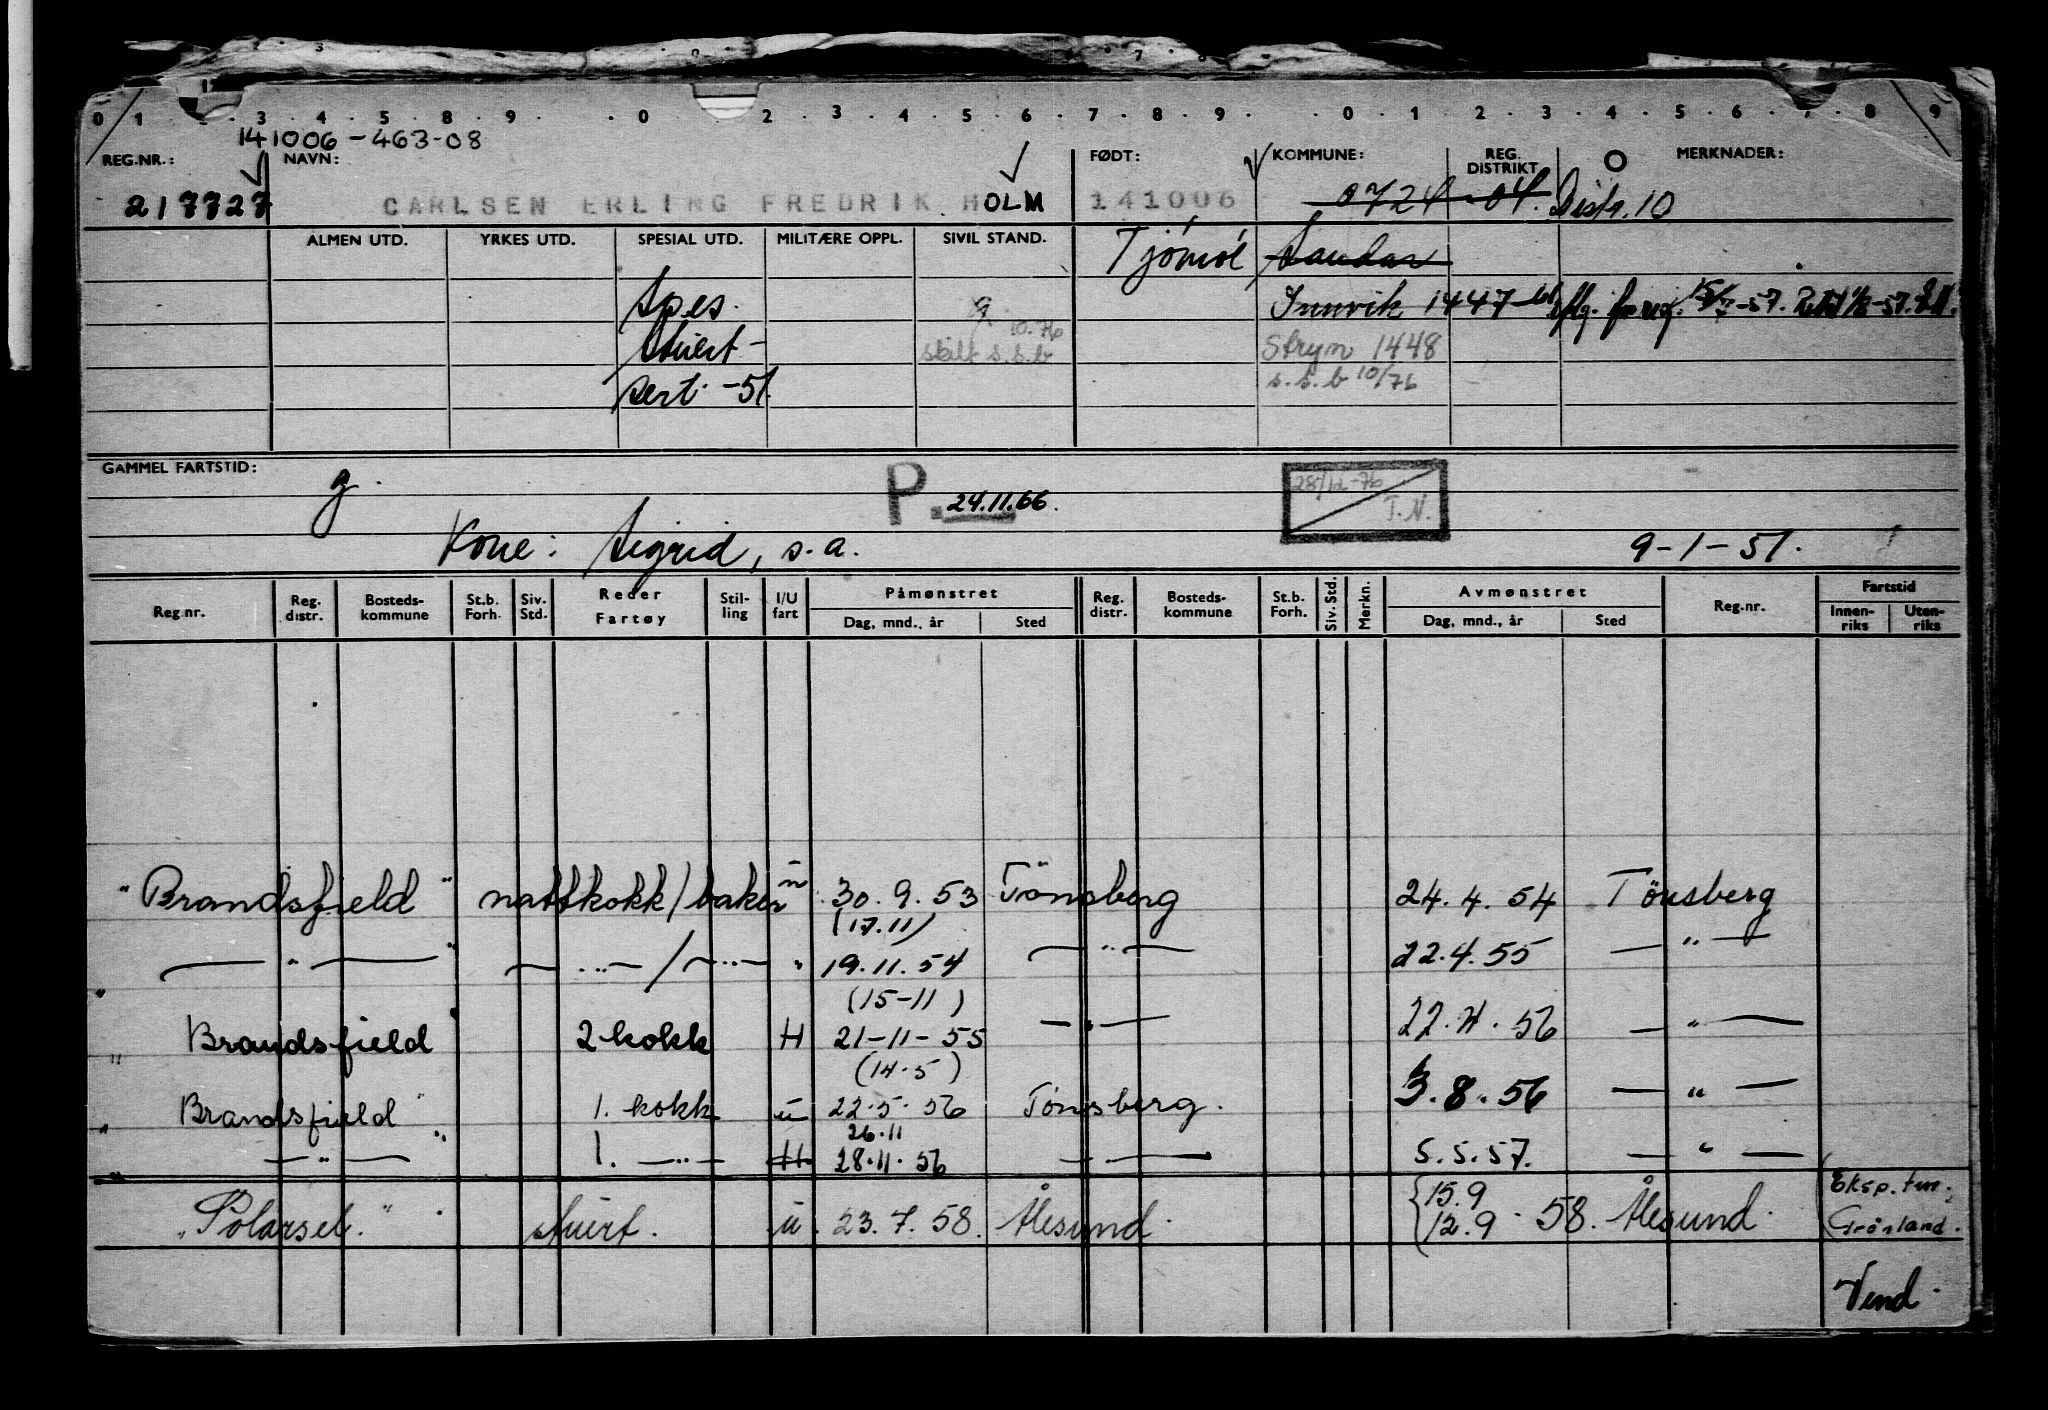 0 1 2 3 4 5 8 9 0 2 3 4 5 6 7 8 9 0 1 2 3 4 5 6 7 8 9
141006-463-08
REG.NR.: NAVN: FØDT: KOMMUNE: REG. DISTRIKT MERKNADER:
217727 CARLSEN ERLING FREDRIK HOLM 141006 0724-04. Distr. 10
ALMEN UTD. YRKES UTD. SPESIAL UTD. MILITÆRE OPPL. SIVIL STAND. Tjömöe Sandar
Spes. g Innvik 1447
Stuert- 10.76 skilt s.s.b Stryn 1448
sert. -51. s.s.b 10/76
GAMMEL FARTSTID: g. P. 24.11.66. 28/12-76 T.N.
Kone: Sigrid, s.a. 9-1-51.
Reg.nr. Reg. distr. Bosteds-kommune St.b. Forh. Siv. Std. Reder Fartøy Stil-ling I/U fart Påmønstret Dag, mnd., år Sted Reg. distr. Bosteds-kommune St.b. Forh. Siv. Std. Merkn. Avmønstret Dag, mnd., år Sted Reg.nr. Fartstid Innen-riks Uten-riks
"Brandsfjeld" nattkokk/baker ū 30.9.53 Tönsberg 24.4.54 Tönsberg
(17.11)
— " — — " — / — " — " 19.11.54 — " — 22.4.55 — " —
(15-11)
"Brandsfjeld" 2 kokk H 21-11-55 — " — 22.4.56 — " —
(14.5)
"Brandsfjeld" 1. kokk ū 22.5.56 Tönsberg. 3.8.56 — " —
26.11
" — " — " 1. — " — H 28.11.56 — " — 5.5.57. — " —
"Polarsel." stuert. ū. 23.7.58. Ålesund. {15.9 12.9 . 58. Ålesund. (Eksp. tur. Grönland.
Vend.